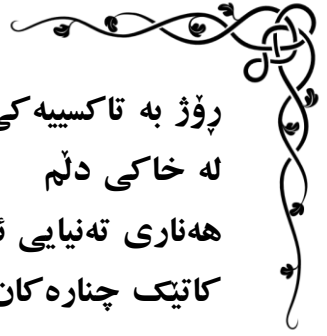 ڕۆژ بە تاکسییەکی
لە خاکی دڵم
هەناری تەنیایی
کاتێک چنارەکان